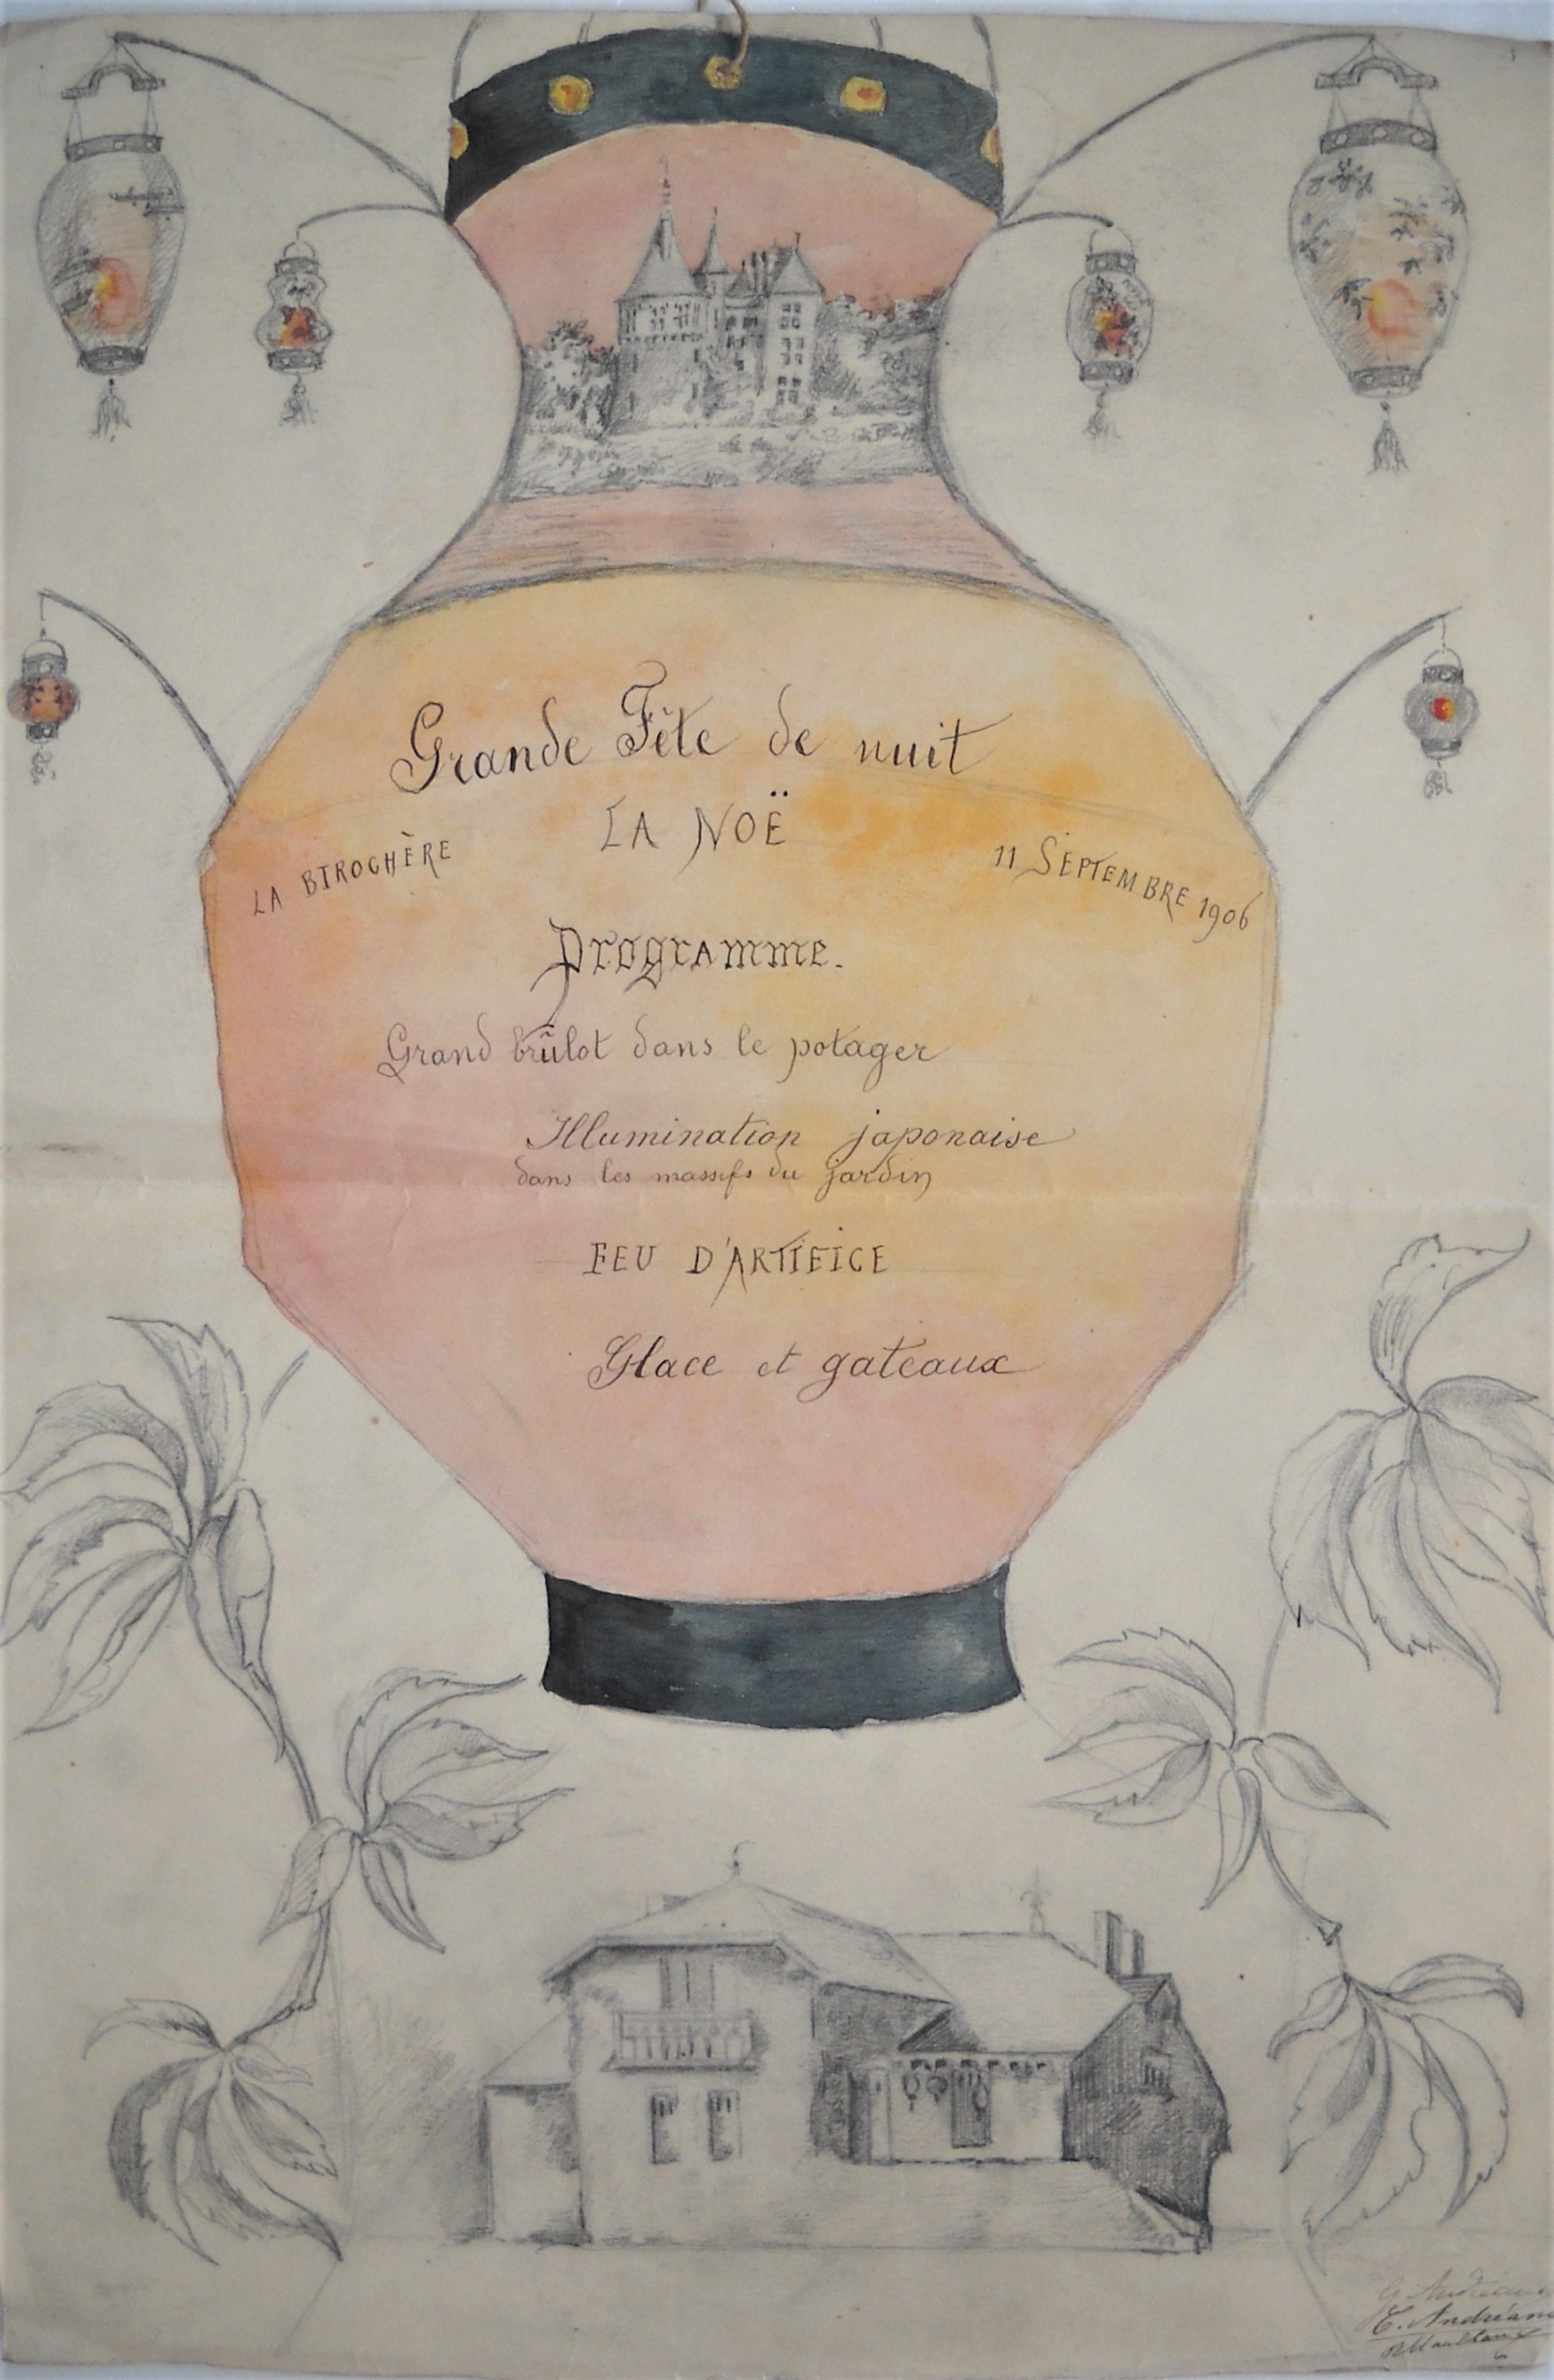 Grande Fête de nuit
LA NOË
LA BIROCHÈRE
11 SEPTEMBRE 1906
Programme.
Grand brûlot dans le potager
Illumination japonaise
dans les massifs du jardin
FEU D'ARTIFICE
Glace et gateaux